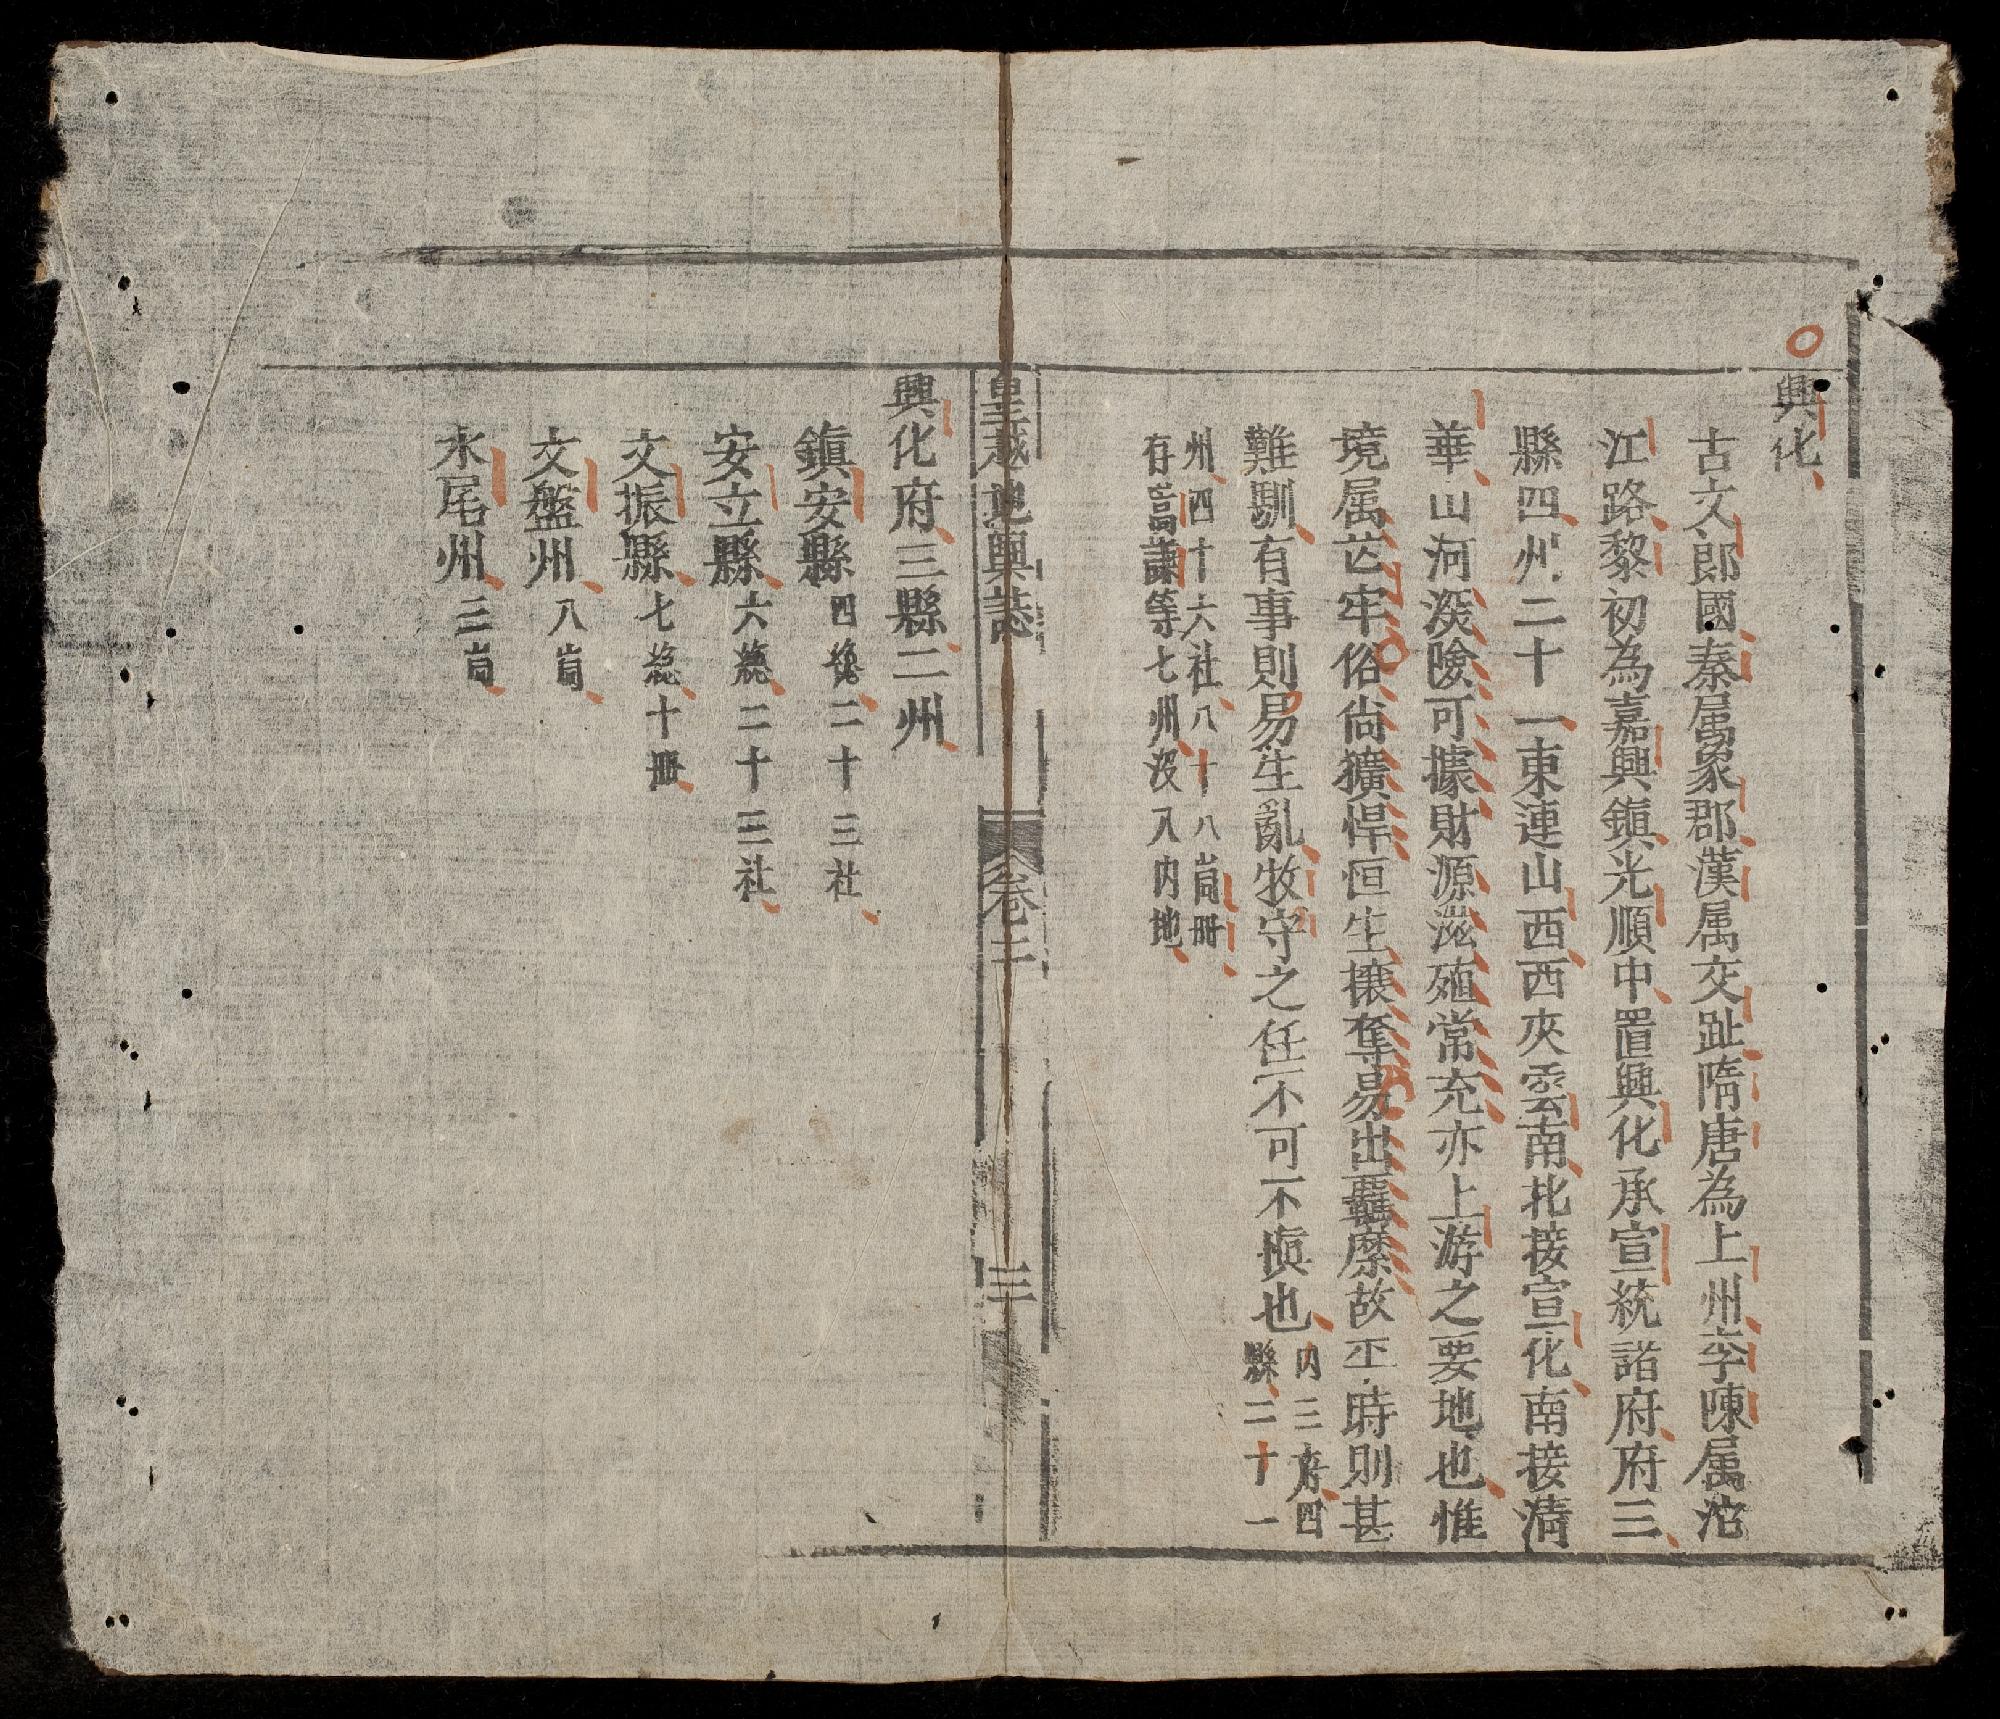 興化
古文郎國秦属象郡漢属交趾隋唐為上州李陳属沱
江路黎初為嘉興鎮光順中置興化承宣統諸府府三
縣四州二十一東連山西西夾雲南北接宣化南接清
華山河深險可據財源滋殖常充亦上游之要地也惟
境属芒牢俗尚獷悍恒生攘奪易出羈縻故平時則甚
難馴有事則易生亂牧守之任不可不慎也
内三府四
縣二十一
州四十六社八十八峝冊
存嵩謙等七州没入内地
皇越地輿誌 卷二 三
興化府三縣二州
鎮安縣四總二十三社
安立縣六總二十三社
文振縣七總十冊
文盤州八峝
水尾州三峝